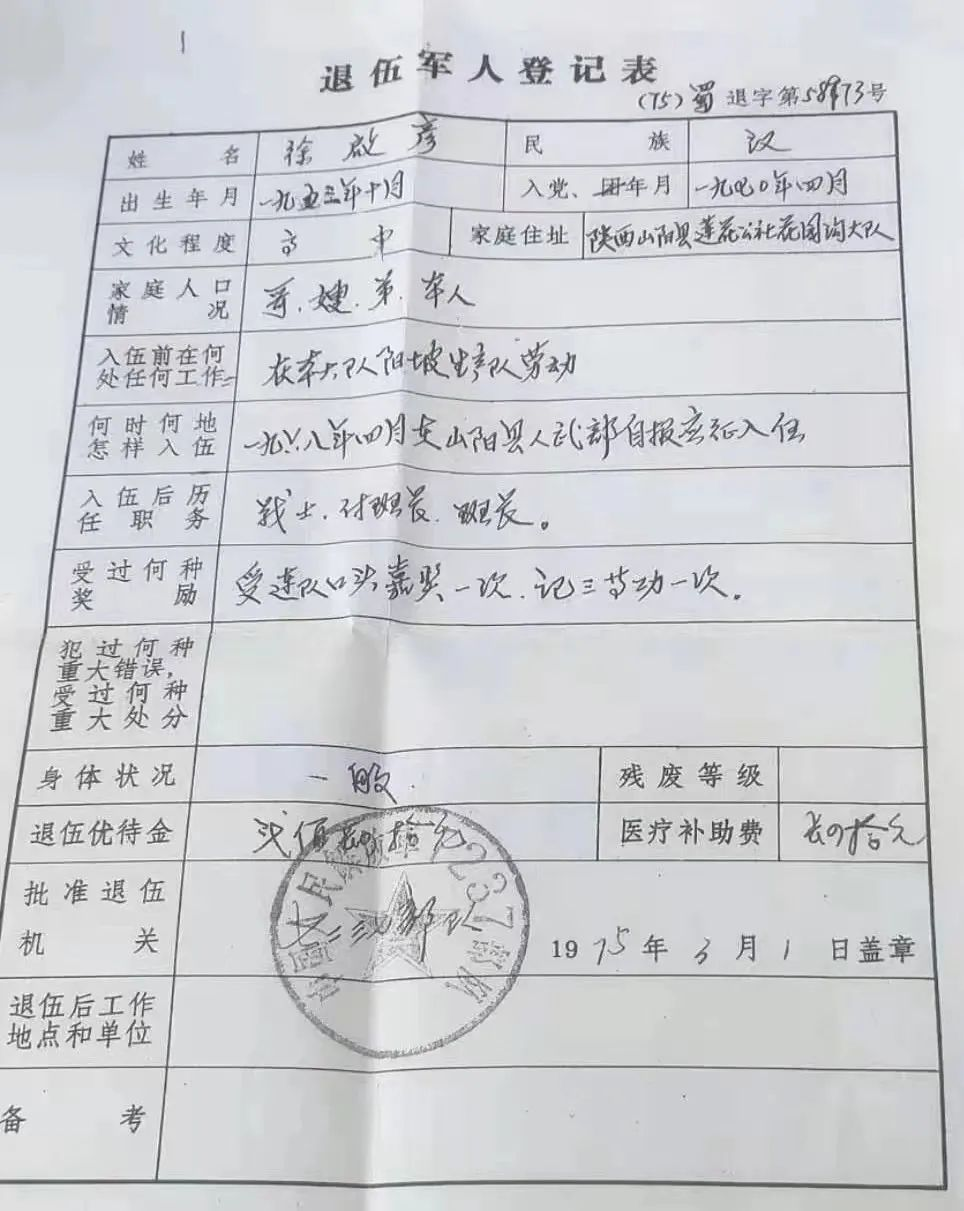 退伍军人登记表
(75)蜀退字第58973号
姓名 徐啟彦 民族 汉
出生年月 一九五三年十月 入党、团年月 一九七〇年四月
文化程度 高中 家庭住址 陕西山阳县莲花公社花园沟大队
家庭人口
情况 哥.嫂.弟.本人
入伍前在何
处任何工作 在本大队阳坡生产队劳动
何时何地
怎样入伍 一九六八年四月在山阳县人武部自报应征入伍
入伍后历
任职务 战士.付班长.班长。
受过何种
奖励 受连队口头嘉奖一次.记三等功一次。
犯过何种
重大错误,
受过何种
重大处分
身体状况 一般 残废等级
退伍优待金 医疗补助费
批准退伍
机关 部队 1975年3月1日盖章
退伍后工作
地点和单位
备考